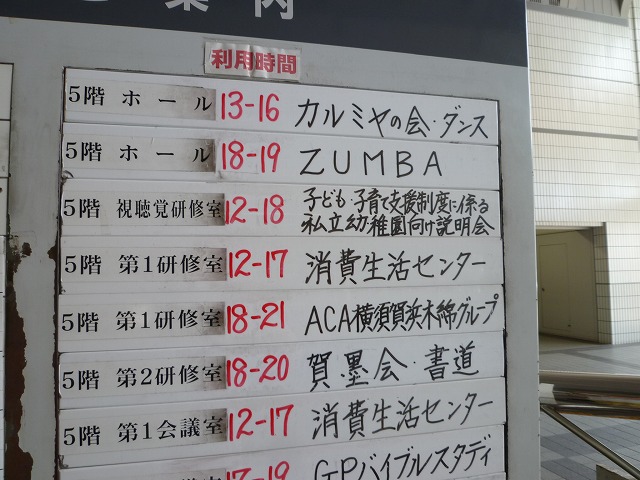 案内
利用時間
5階 ホール 13-16 カルミヤの会・ダンス
5階 ホール 18-19 ZUMBA
5階 視聴覚研修室 12-18 子ども・子育て支援制度に係る
私立幼稚園向け説明会
5階 第1研修室 12-17 消費生活センター
5階 第1研修室 18-21 ACA横須賀浜木綿グループ
5階 第2研修室 18-20 賀墨会・書道
5階 第1会議室 12-17 消費生活センター
17-19 GPバイブルスタディ